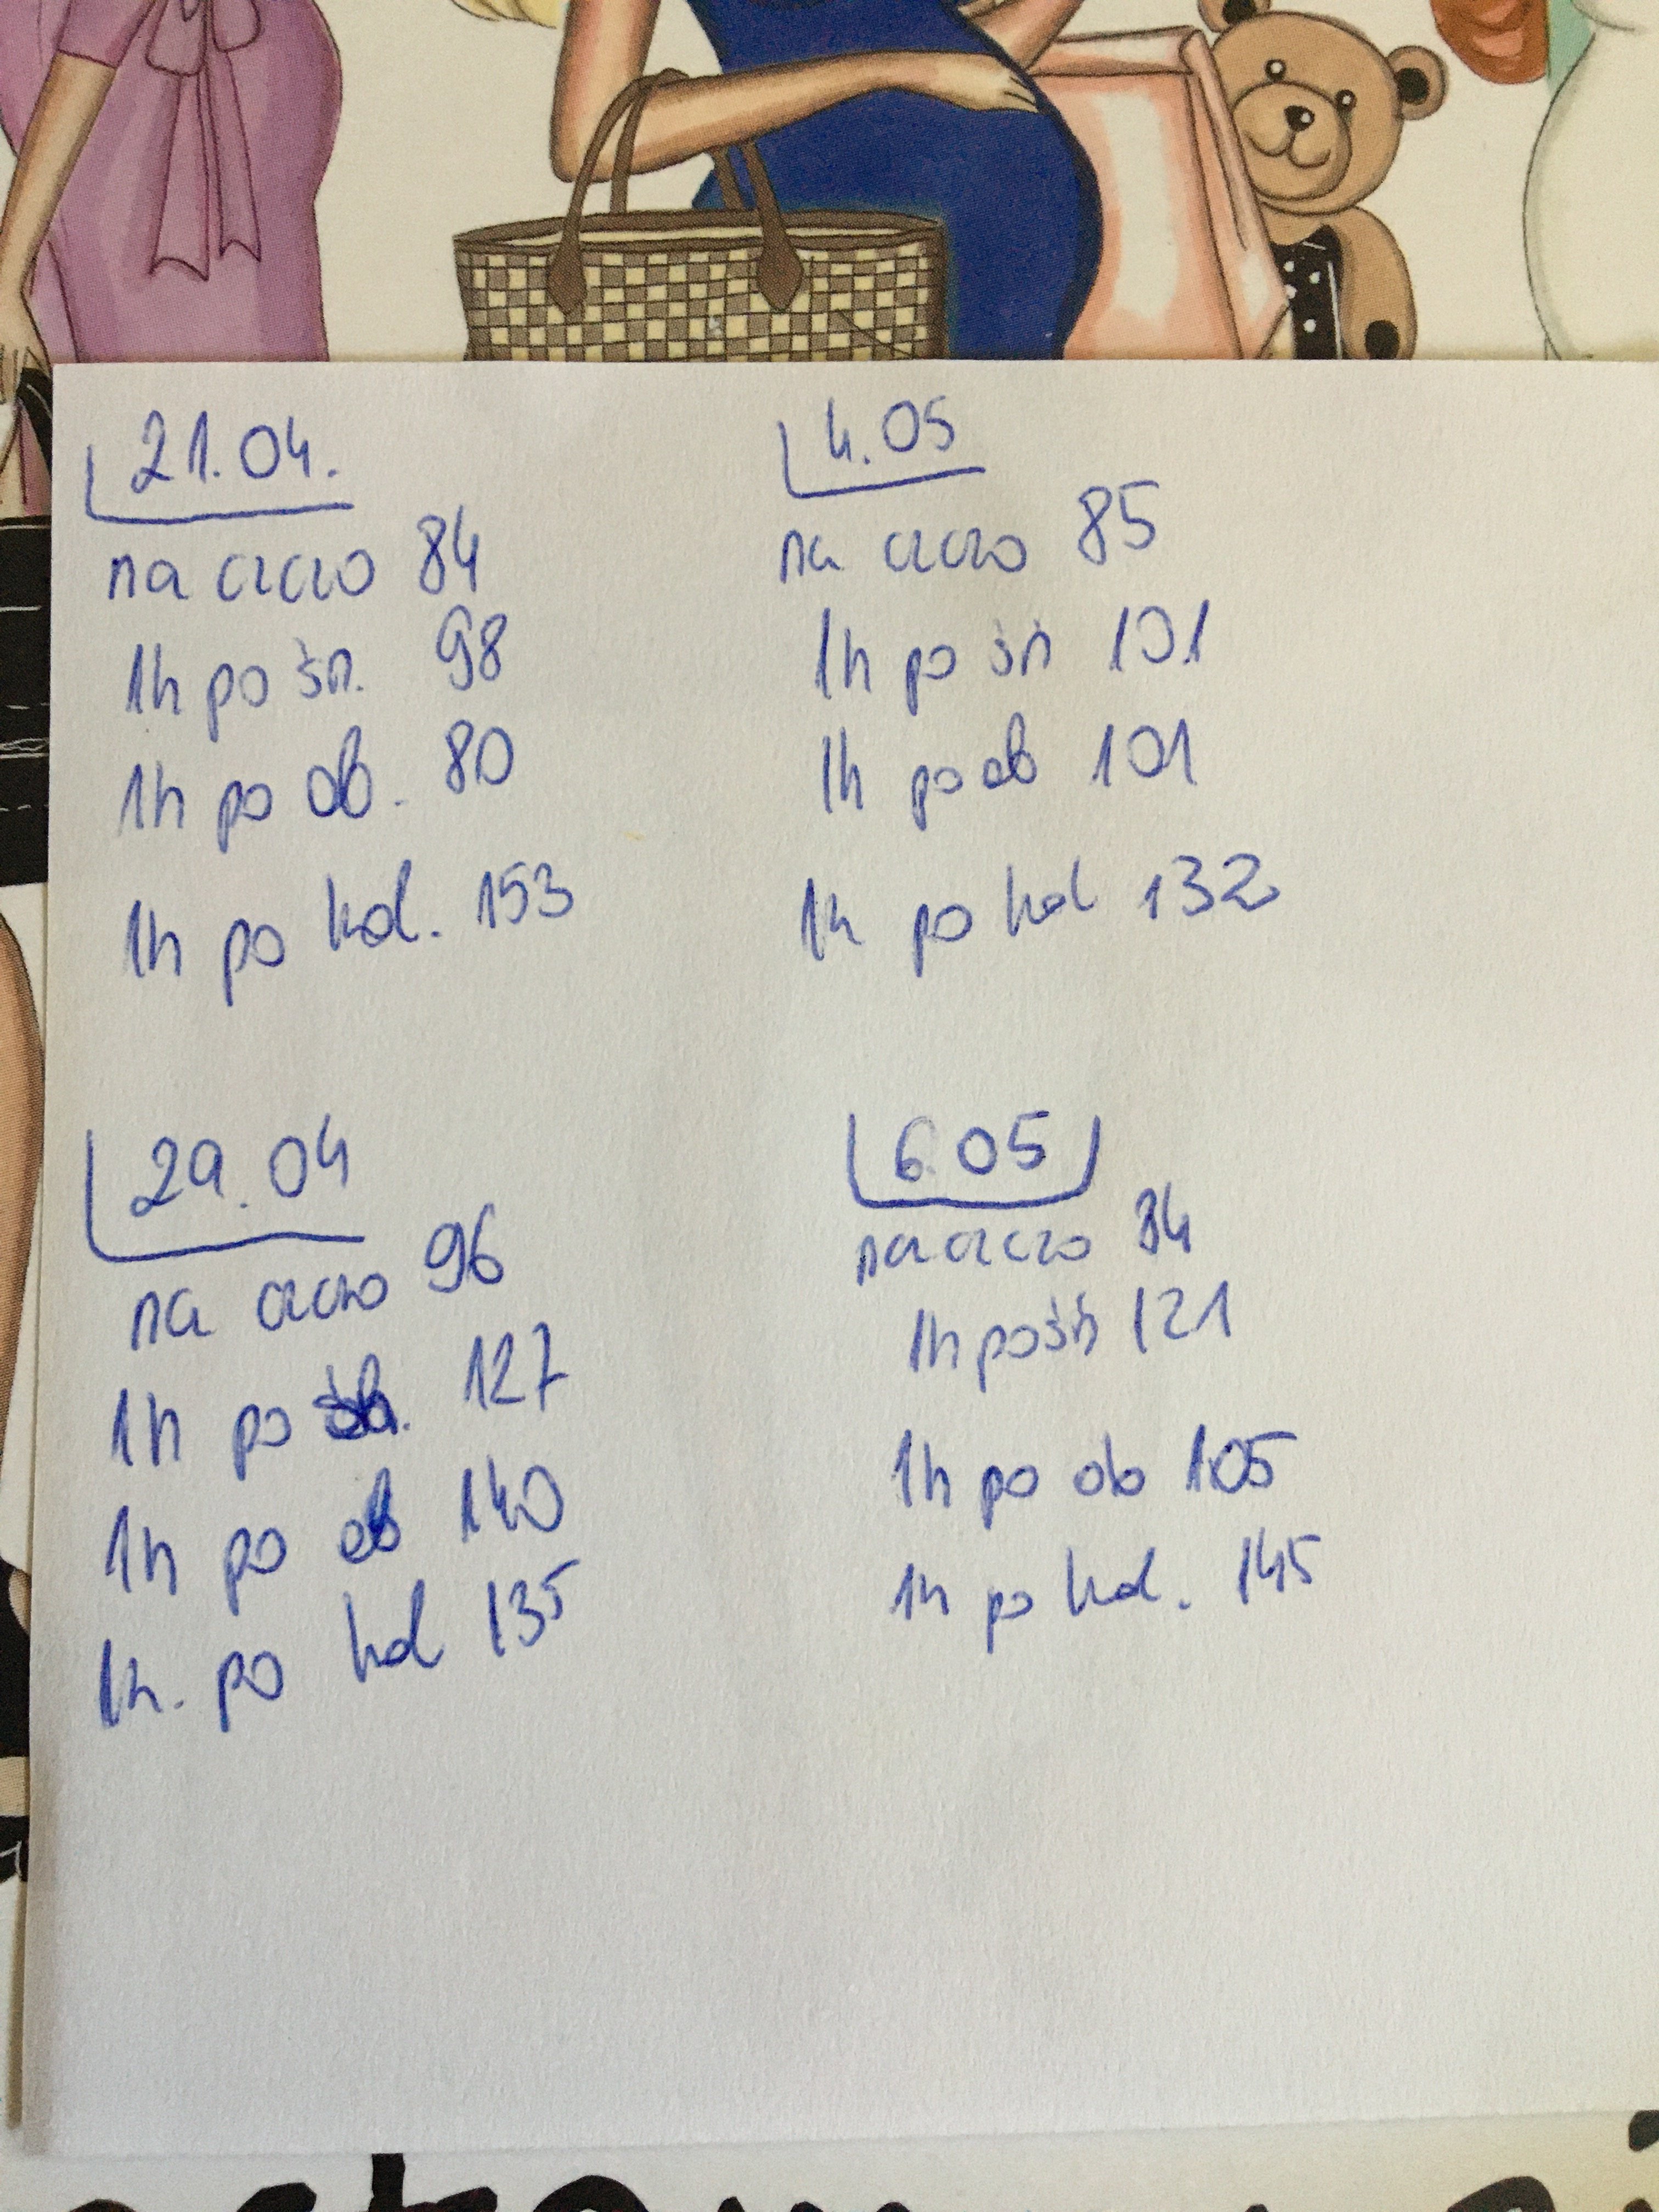 21.04.
na czczo 84
1h po śn. 98
1h po ob. 80
1h po kol. 153
29.04
na czczo 96
1h po śn. 127
1h po ob 140
1h. po kol 135
4.05
na czczo 85
1h po śń 101
1h po ob 101
1h po kol 132
6.05
na czczo 84
1h po śń 121
1h po ob 105
1h po kol. 145